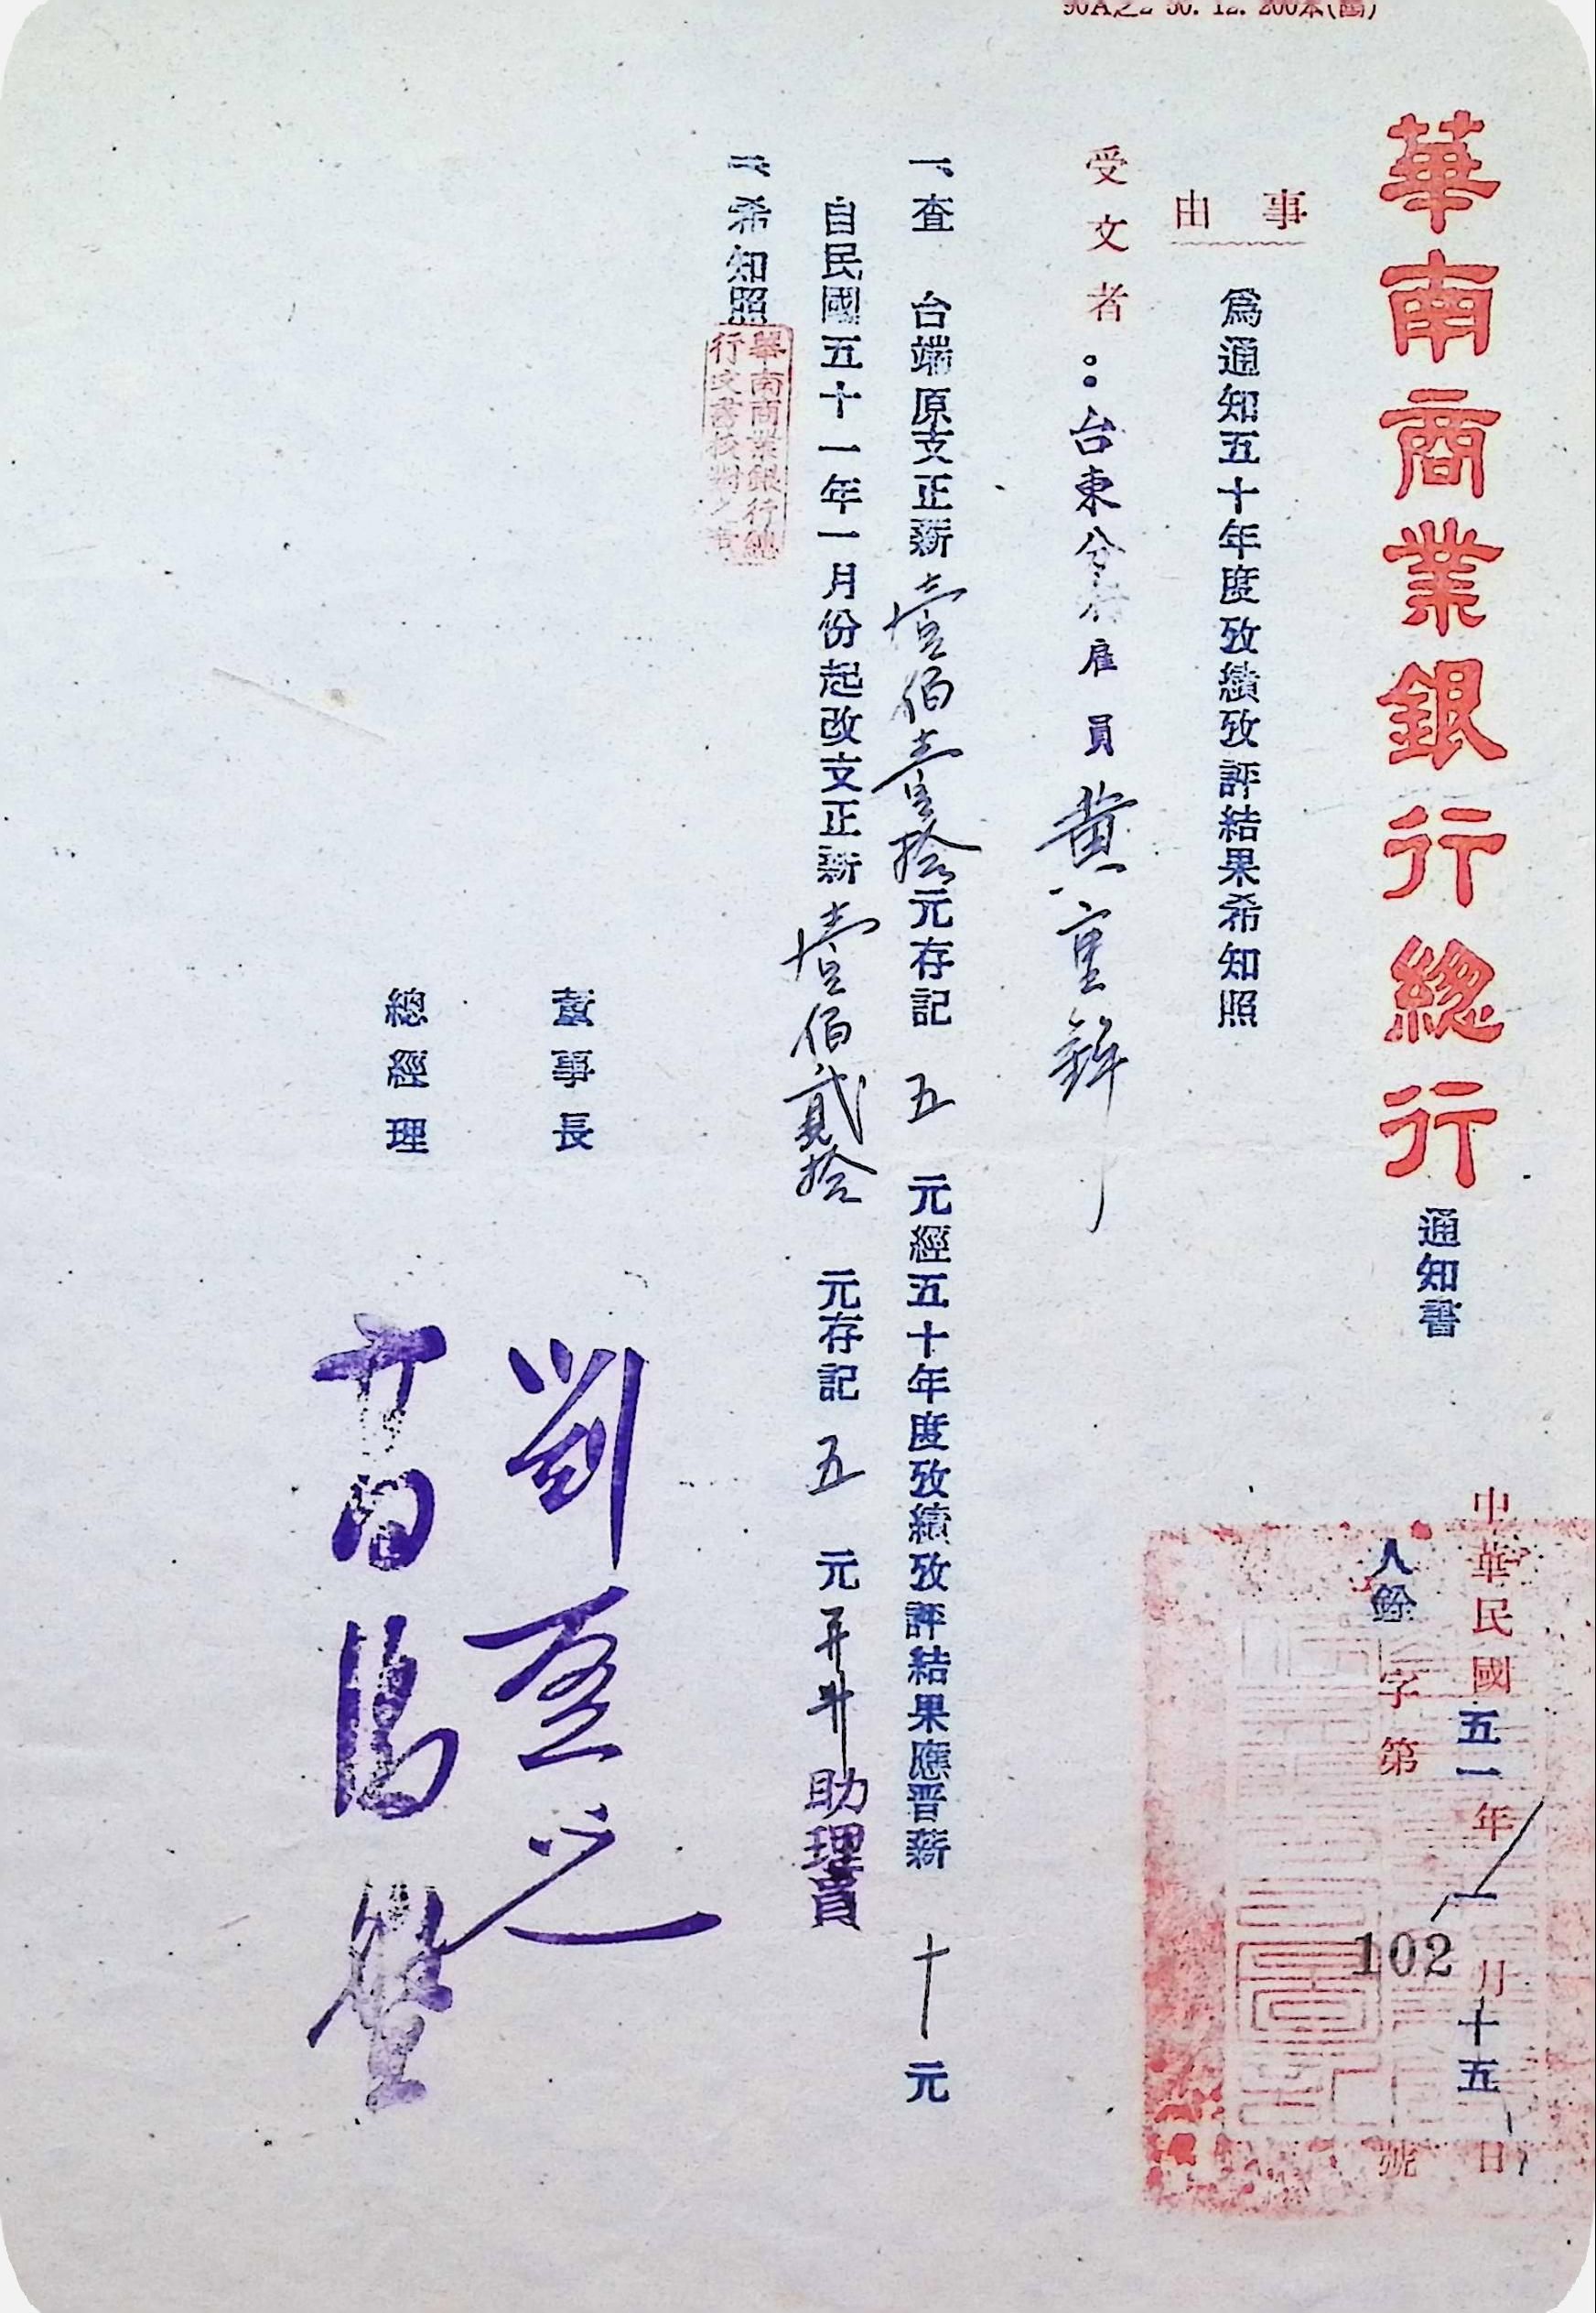 華南商業銀行總行通知書
中華民國五一年一月十五日
人銓字第102號
事由
為通知五十年度攷績攷評結果希知照
受文者：台東分行雇員黃重鉾
一、查 台端原支正薪壹佰壹拾元存記五元經五十年度攷績攷評結果應晋薪十元
自民國五十一年一月份起改支正薪壹佰貳拾元存記五元并升助理員
二、希知照
華南商業銀行總
行文書校對之章
董事長 劉啓光
總經理 高湯盤